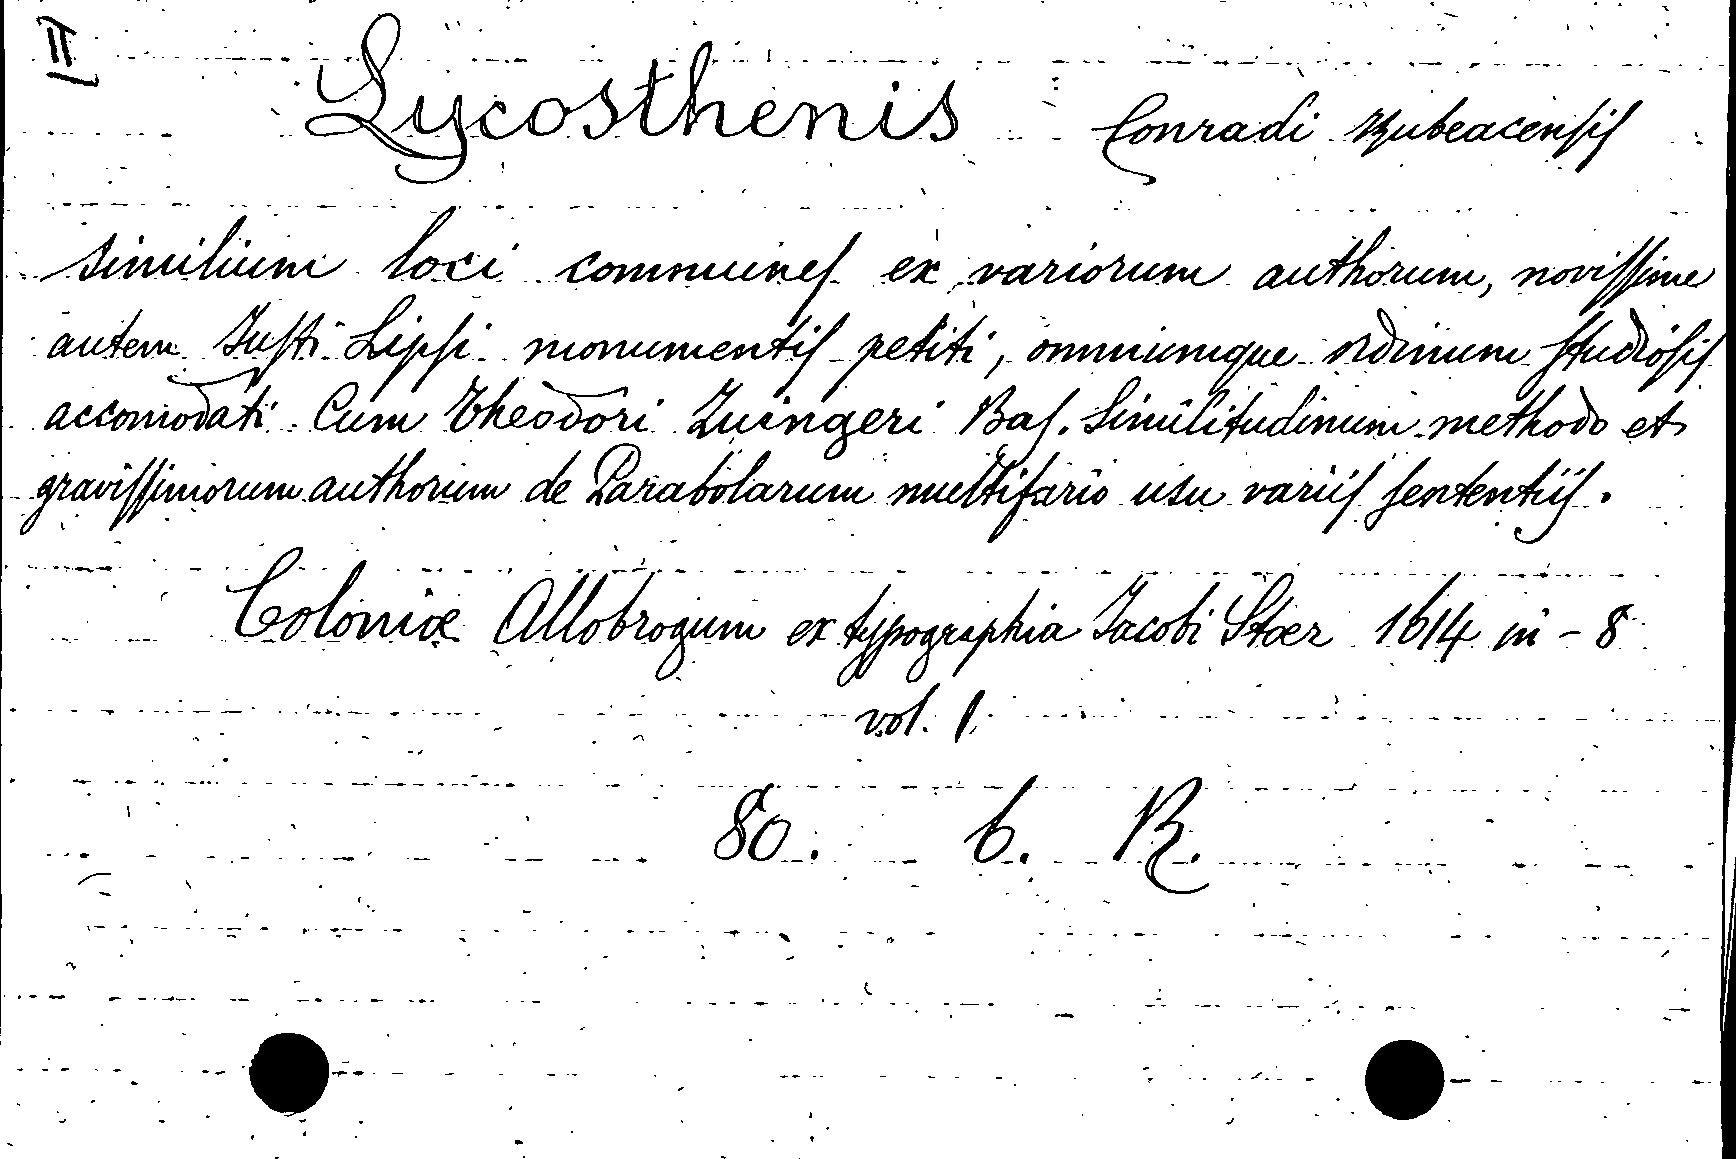 II
Lycosthenis Conradi Rubeacensis
similium loci communes ex variorum authorum, novissime
autem Justi Lipsi monumentis petiti, omniumque ordinum studiosis
accomodati Cum Theodori Zuingeri Bas. Similitudinum methodo et
gravissimorum authorum de Parabolarum multifario usu variis sententiis.
Coloniæ Allobrogum ex typographia Jacobi Stœr 1614 in-8
vol. 1
80. 6. R.